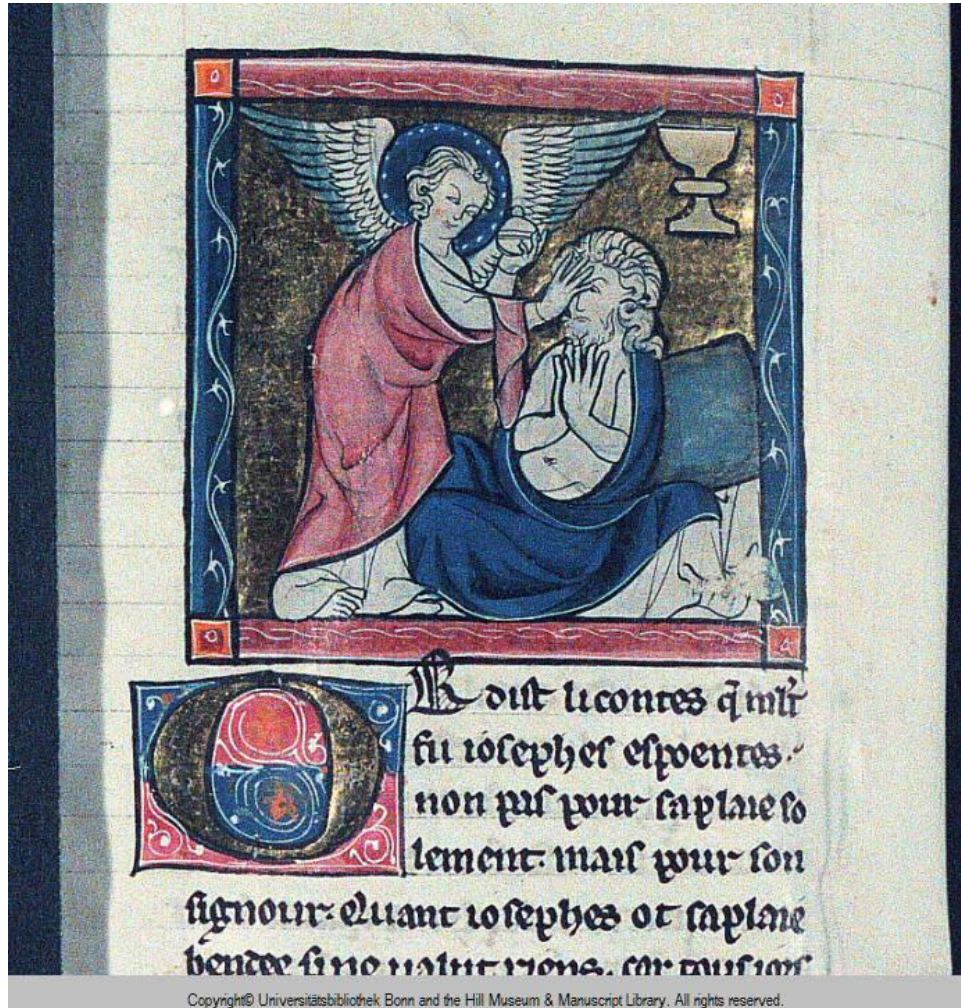 OR dist li contes q̃ ml't
fu iosephes espoentes.
non pas pour sa plaie so
lement. mais pour son
signour. Quant iosephes ot sa plaie
bendee si ne ualut riens. car tous iors
Copyright© Universitätsbibliothek Bonn and the Hill Museum & Manuscript Library. All rights reserved.